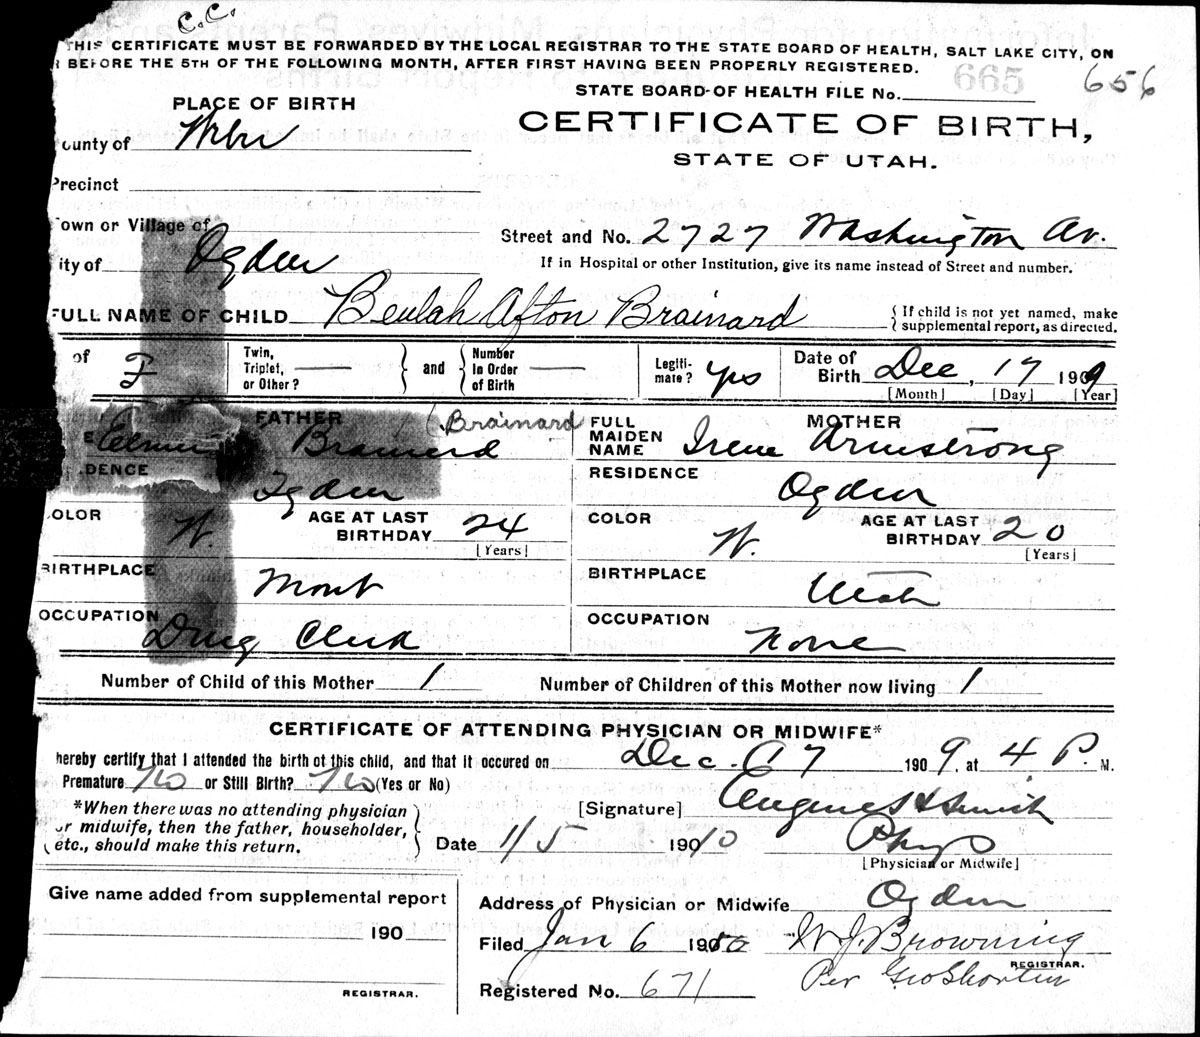 C.C.
THIS CERTIFICATE MUST BE FORWARDED BY THE LOCAL REGISTRAR TO THE STATE BOARD OF HEALTH, SALT LAKE CITY, ON
BEFORE THE 5TH OF THE FOLLOWING MONTH, AFTER FIRST HAVING BEEN PROPERLY REGISTERED.
656
STATE BOARD OF HEALTH FILE No. 665
PLACE OF BIRTH
CERTIFICATE OF BIRTH,
STATE OF UTAH.
ounty of Weber
Precinct
own or Village of
Street and No. 2727 Washington Av.
ity of Ogden
If in Hospital or other Institution, give its name instead of Street and number.
FULL NAME OF CHILD Beulah Afton Brainard { If child is not yet named, make
supplemental report, as directed.
of F Twin, Triplet, or Other? — and Number In Order of Birth — Legiti-mate? yes Date of Birth Dec, 17 1909
[Month] [Day] [Year]
FATHER (Brainard
Brainerd
DENCE Ogden
COLOR W. AGE AT LAST BIRTHDAY 24
[Years]
BIRTHPLACE Mont
OCCUPATION Drug Clerk
MOTHER
FULL MAIDEN NAME Irene Armstrong
RESIDENCE Ogden
COLOR W. AGE AT LAST BIRTHDAY 20
[Years]
BIRTHPLACE Utah
OCCUPATION None
Number of Child of this Mother 1 Number of Children of this Mother now living 1
CERTIFICATE OF ATTENDING PHYSICIAN OR MIDWIFE*
hereby certify that I attended the birth of this child, and that it occured on Dec. 17 1909, at 4 P. M.
Premature No or Still Birth? No (Yes or No)
*When there was no attending physician
or midwife, then the father, householder,
etc., should make this return.
[Signature] Eugene H Smith
Date 1/5 1910 Phys
[Physician or Midwife]
Give name added from supplemental report
190
REGISTRAR.
Address of Physician or Midwife Ogden
Filed Jan 6 1910 W. J. Browning
REGISTRAR.
Registered No. 671 Per Geo Shorten